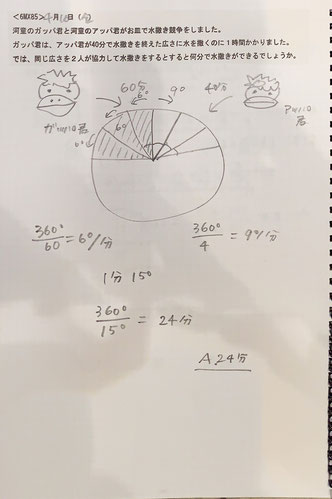 <6MX85> 4月
河童のガッパ君と河童のアッパ君がお皿で水撒き競争をしました。
ガッパ君は、アッパ君が40分で水撒きを終えた広さに水を撒くのに１時間かかりました。
では、同じ広さを２人が協力して水撒きをするとすると何分で水撒きができるでしょうか。
60分 9° 40分
6°
6°
ガッパ君
アッパ君
360°/60 = 6°/分
360°/4 = 9°/分
1分 15°
360°/15° = 24分
A 24分